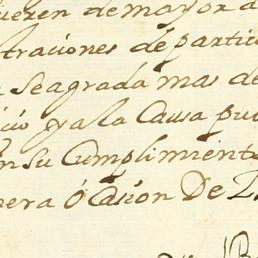 de mayor a
traciones de partic
Seagrada mas de
cio y a la Causa pu
n su Cumplimient
nera ó Casion De